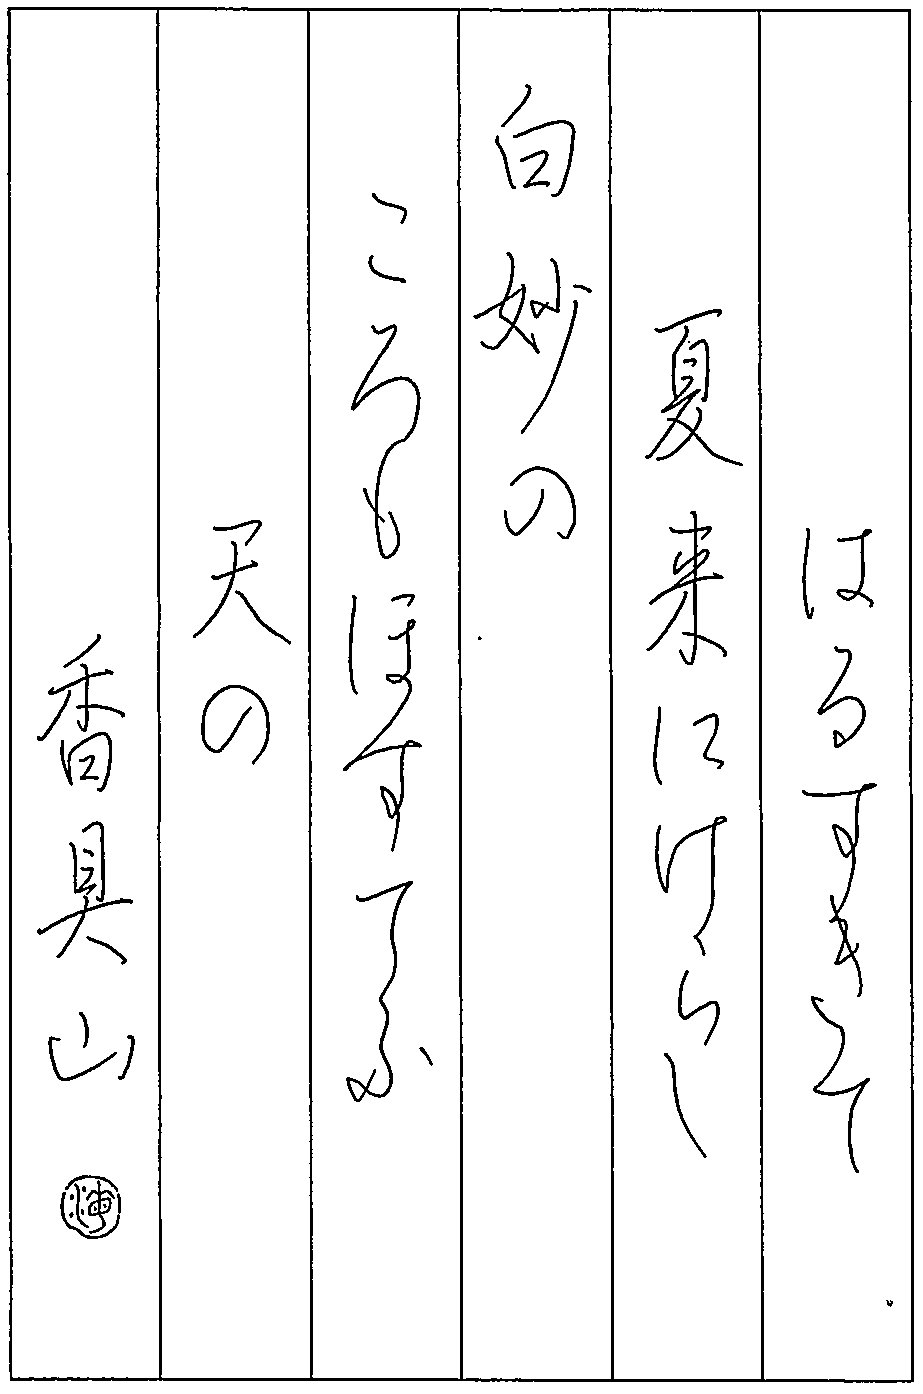 はるすきて
夏来にけらし
白妙の
ころもほすてふ
天の
香具山